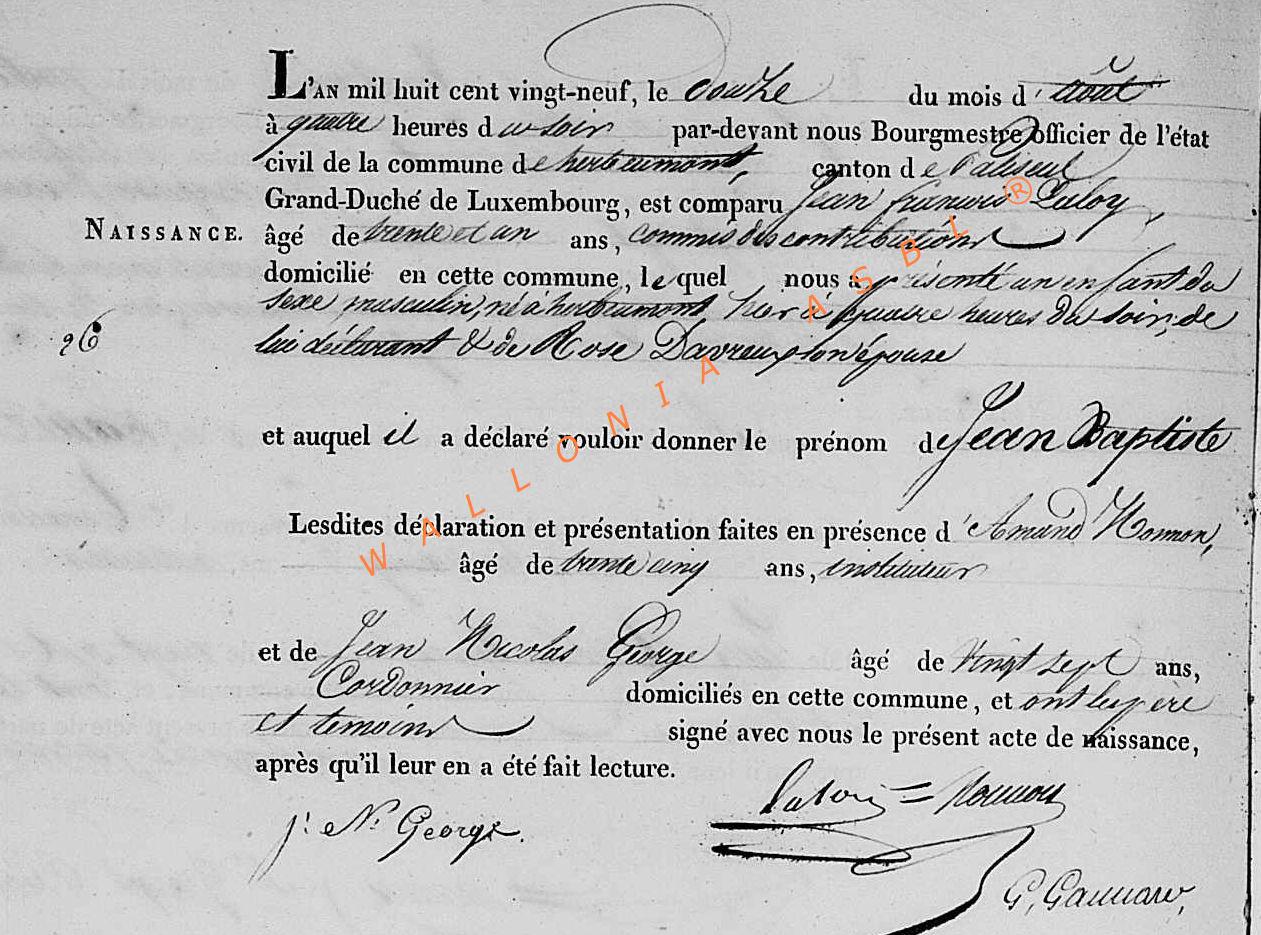 L'AN mil huit cent vingt-neuf, le douze du mois d'août
à quatre heures du soir par-devant nous Bourgmestre officier de l'état
civil de la commune de herbeumont, canton de Paliseul
Grand-Duché de Luxembourg, est comparu Jean françois Laloy,
NAISSANCE. âgé de trente et un ans, commis des contributions
domicilié en cette commune, lequel nous a présenté un enfant du
sexe masculin, né a herbeumont, hier à quatre heures du soir, de
26 lui déclarant & de Rose Davreux son épouse
et auquel il a déclaré vouloir donner le prénom de Jean Baptiste
Lesdites déclaration et présentation faites en présence d'Amand
âgé de trente cinq ans, instituteur
et de Jean Nicolas George âgé de vingt sept ans,
Cordonnier domiciliés en cette commune, et ont les père
et temoins signé avec nous le présent acte de naissance,
après qu'il leur en a été fait lecture.
j. N. George.
WALLONIA ASBL ®